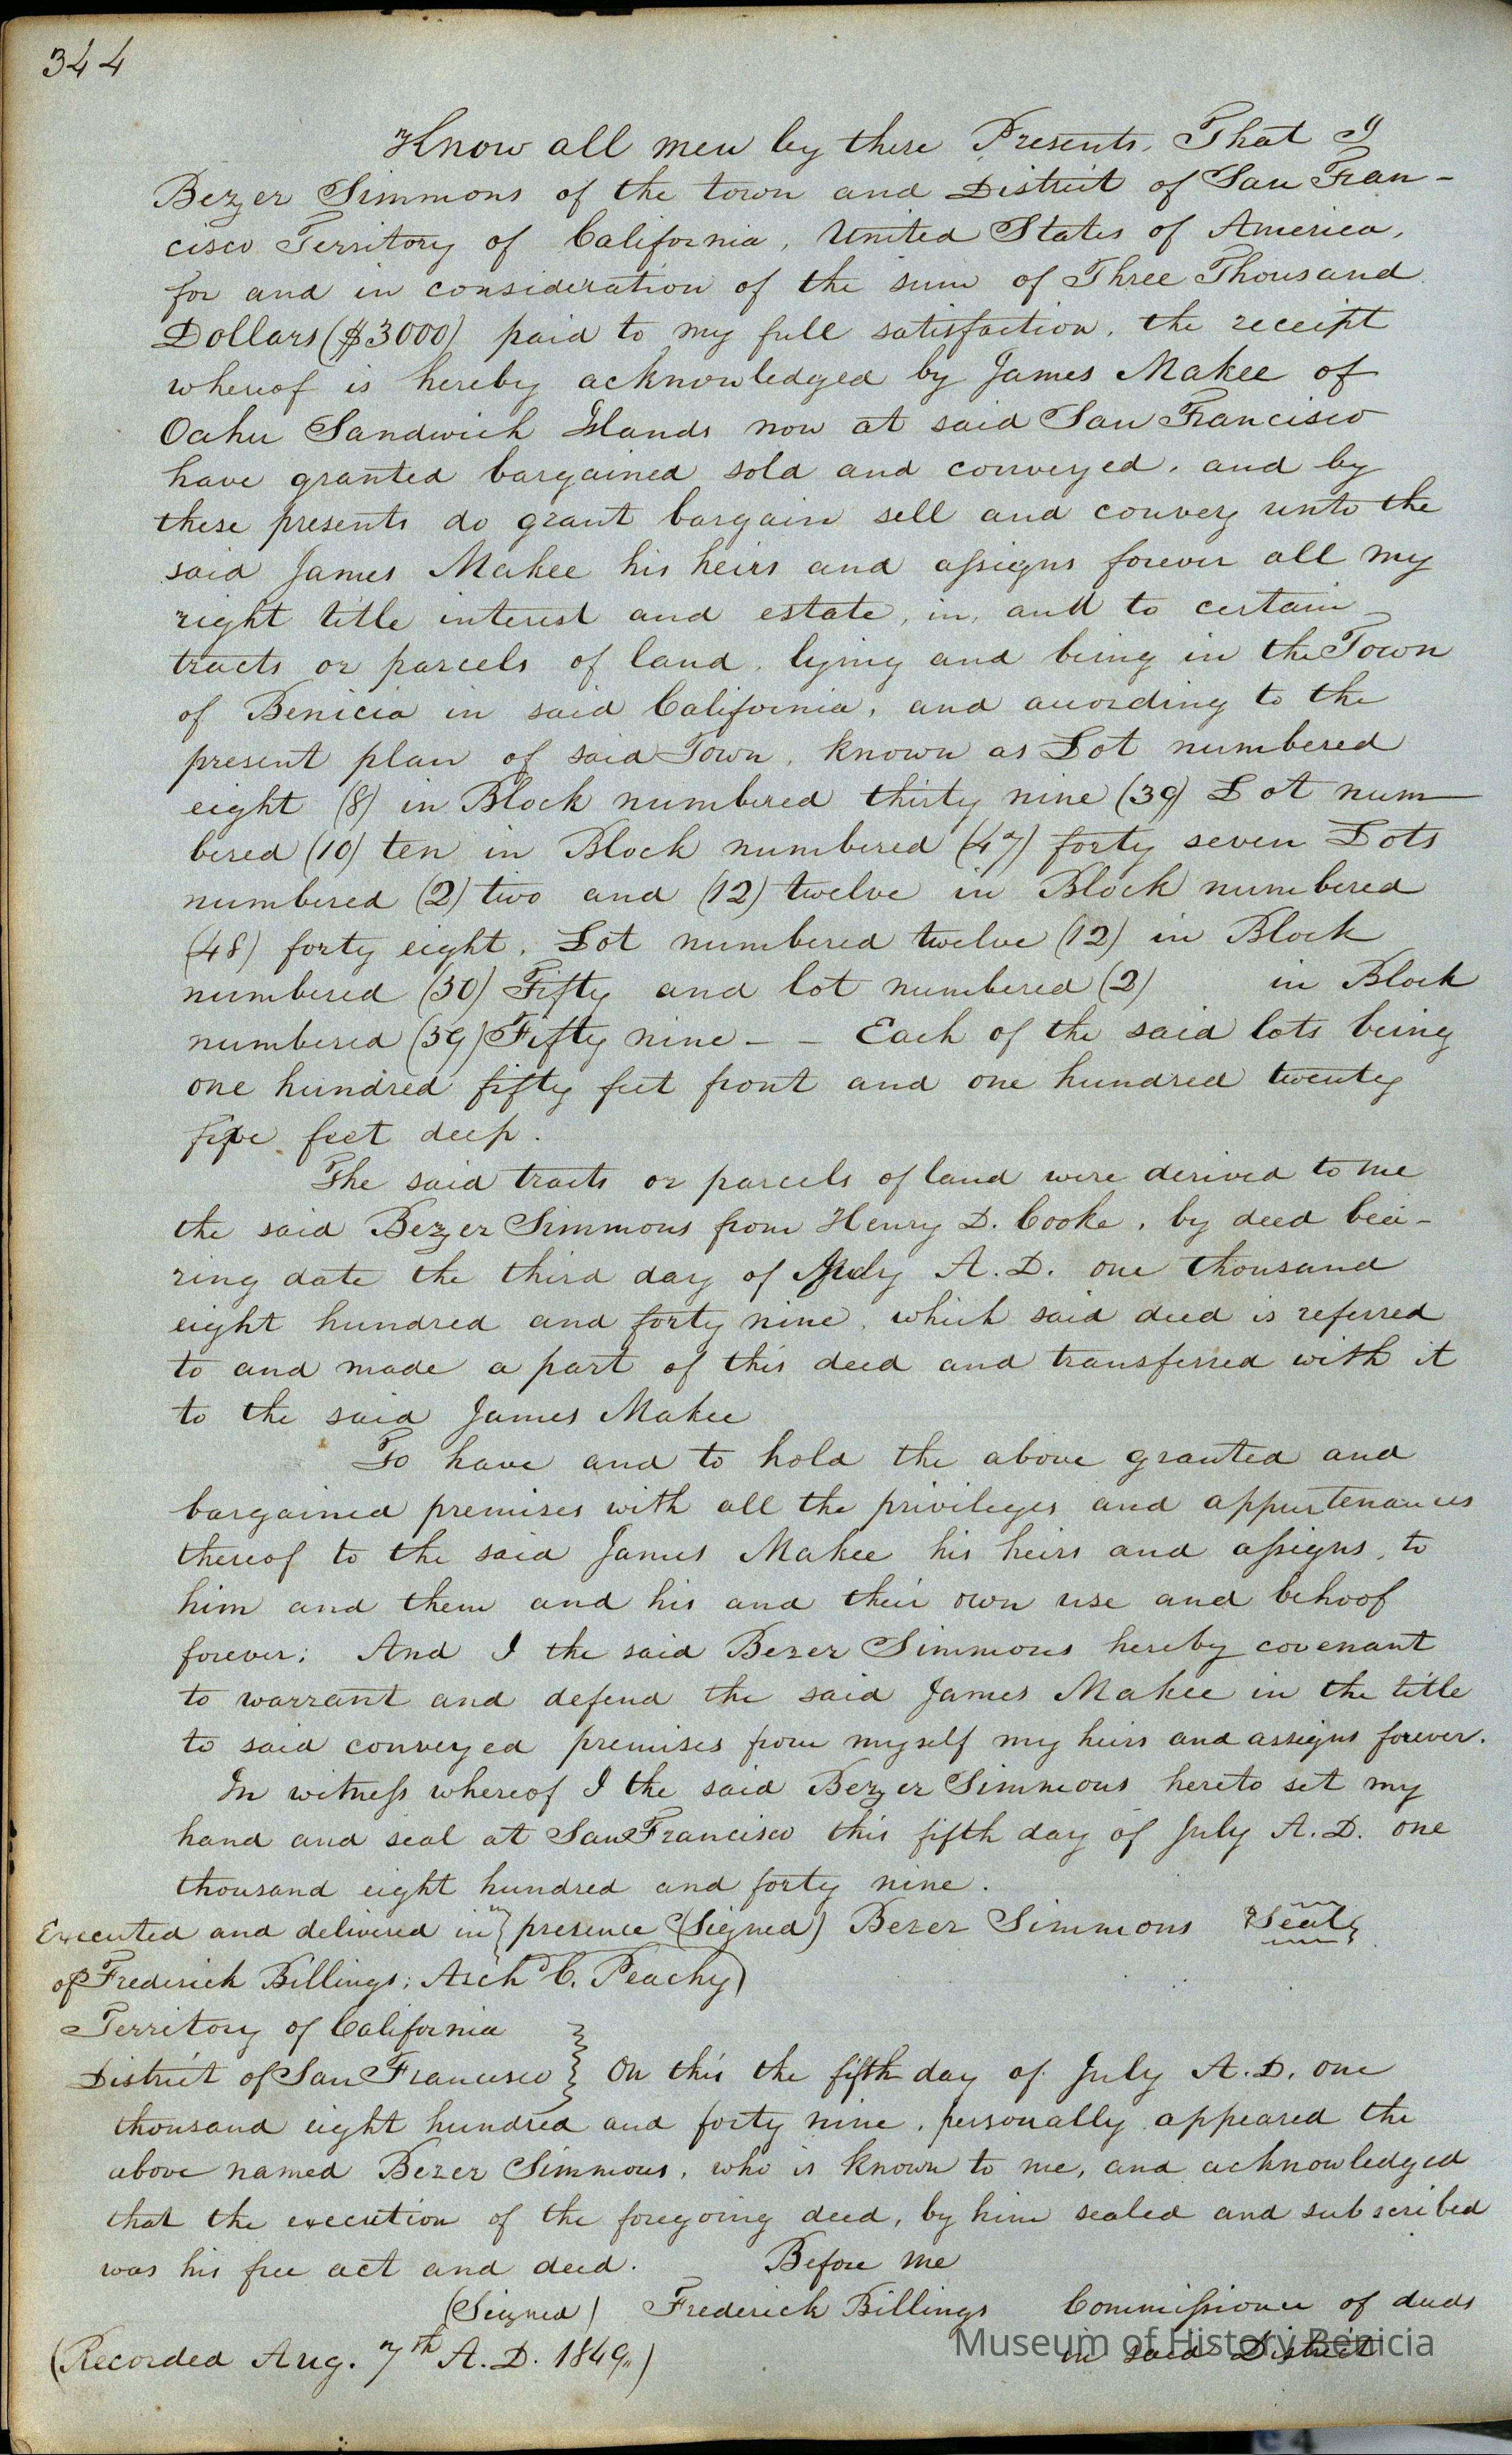 344
Know all men by these Presents, That I
Bezer Simmons of the town and District of San Fran-
cisco Territory of California, United States of America,
for and in consideration of the sum of Three Thousand
Dollars ($3000) paid to my full satisfaction, the receipt
whereof is hereby acknowledged by James Makee of
Oahu Sandwich Islands now at said San Francisco
have granted bargained sold and conveyed, and by
these presents do grant bargain sell and convey unto the
said James Makee his heirs and assigns forever all my
right title interest and estate, in, and to certain
tracts or parcels of land, lying and being in the Town
of Benicia in said California, and according to the
present plan of said Town, known as Lot numbered
eight (8) in Block numbered thirty nine (39) Lot num-
bered (10) ten in Block numbered (47) forty seven Lots
numbered (2) two and (12) twelve in Block numbered
(48) forty eight, Lot numbered twelve (12) in Block
numbered (50) Fifty and lot numbered (2) in Block
numbered (59) Fifty nine - - Each of the said lots being
one hundred fifty feet front and one hundred twenty
five feet deep.
The said tracts or parcels of land were derived to me
the said Bezer Simmons from Henry D. Cooke, by deed bea-
ring date the third day of July A.D. one thousand
eight hundred and forty nine, which said deed is referred
to and made a part of this deed and transferred with it
to the said James Makee
To have and to hold the above granted and
bargained premises with all the privileges and appurtenances
thereof to the said James Makee his heirs and assigns, to
him and them and his and their own use and behoof
forever; And I the said Bezer Simmons hereby covenant
to warrant and defend the said James Makee in the title
to said conveyed premises from myself my heirs and assigns forever.
In witness whereof I the said Bezer Simmons hereto set my
hand and seal at San Francisco this fifth day of July A.D. one
thousand eight hundred and forty nine.
Executed and delivered in } presence (Signed) Bezer Simmons {Seal}
of Frederick Billings; Arch^d C. Peachy)
Territory of California
District of San Francisco } On this the fifth day of July A.D. one
thousand eight hundred and forty nine, personally appeared the
above named Bezer Simmons, who is known to me, and acknowledged
that the execution of the foregoing deed, by him sealed and subscribed
was his free act and deed. Before me
(Signed) Frederick Billings Commissioner of deeds
in said District
(Recorded Aug. 7th A.D. 1849.)
Museum of History Benicia